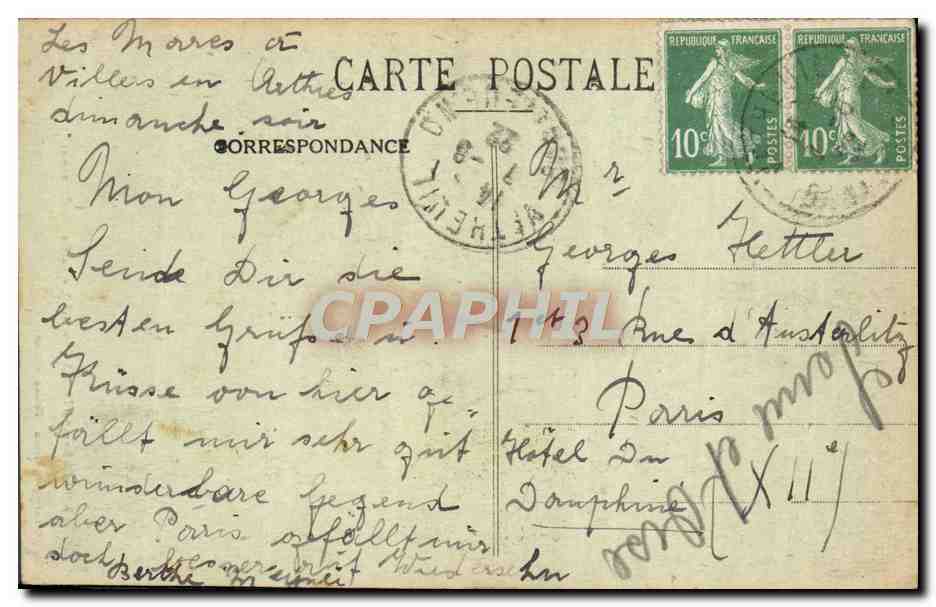 Les Marres à
Villers en Arthies
dimanche soir
CARTE POSTALE
CORRESPONDANCE
Mon Georges
Sende Dir die
besten Grüsse u.
Küsse von hier ge-
fällt mir sehr gut
wunderbare Gegend
aber Paris gefällt mir
doch besser auf Wiedersehn
Berthe
REPUBLIQUE FRANÇAISE
10c POSTES
REPUBLIQUE FRANÇAISE
10c POSTES
VETHEUIL
14
22
CPAPHIL
Mr
Georges Hettler
1 et 3 Rue d'Austerlitz
Paris
Hôtel Du
Dauphine (XIIe)